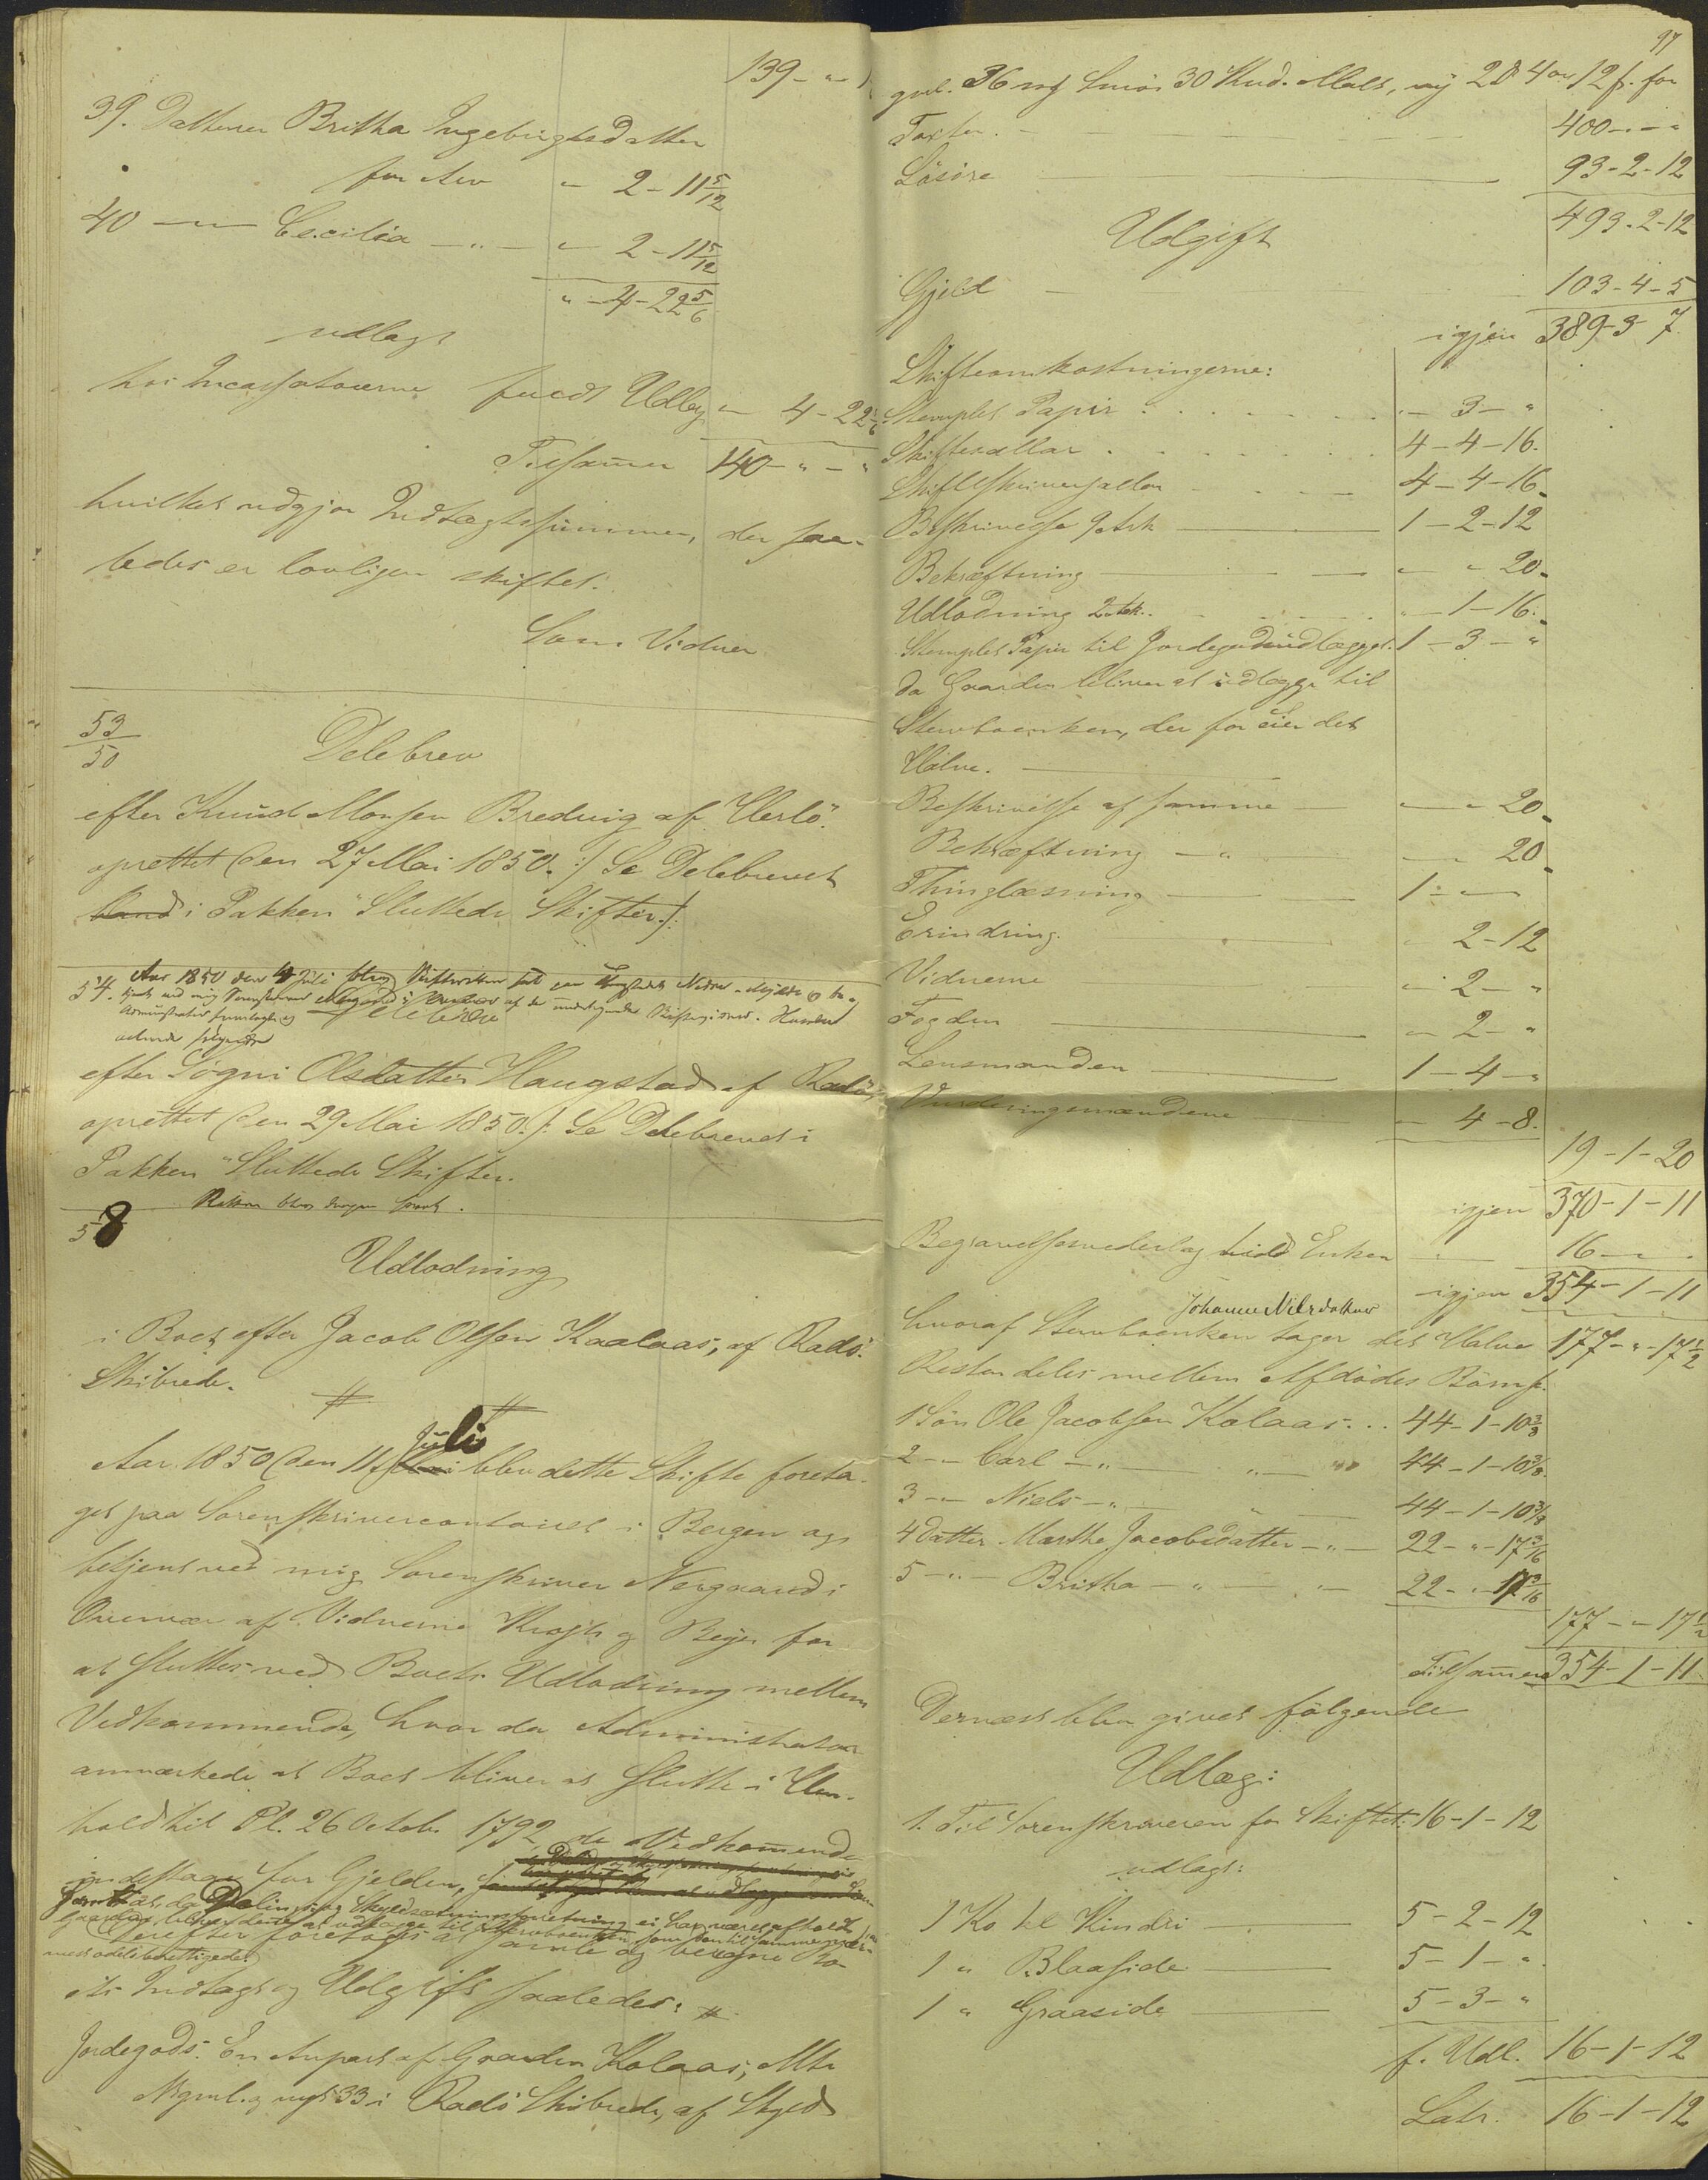 139-"-"
39. Datteren Britha Ingebrigtsdatter
for Arv " 2-11 5/12
40 —"— Cecilia —"— " 2-11 5/12
"-4-22 5/6
udlagt
hos Incassatorerne fuldt Udlæg " 4-22 5/6
Tilsamen 140-"-"
hvilket udgjør Indtægtssummen, der saa-
ledes er lovligen skiftet.
Som Vidner
53/50
Delebrev
efter Knud Monsen Bredvig af Herlö.
oprettet den 27 Mai 1850. /: Se Delebrevet
i Pakken "Sluttede Skifter. :/
54. Aar 1850 den 4 Juli blev Skifteretten sat
Delebrev
efter Sögni Olsdatter Haugstad af Radö,
oprettet den 29 Mai 1850. /: Se Delebrevet i
Pakken "Sluttede Skifter.
Retten blev derpaa hævet.
58
Udlodning
i Boet efter Jacob Olsen Kaalaas, af Radö
Skibrede.
Juli
Aar 1850 den 11 blev dette Skifte foreta-
get paa Sorenskrivercontoiret i Bergen og
betjent ved mig Sorenskriver Nergaard i
Overvær af Vidnerne Krogh og Beyer for
at sluttes ved Boets Udlodning mellem
Vedkommende, hvor da Administrator
anmærkede at Boet bliver at slutte i Hen-
hold til Pl. 26 Octob. 1792, da Vedkommende
indestaar for Gjelden,
samt at, da Delings og Skyldsætningsforretning ei har været afholdt,
Gaarden bliver dette at udlægge til Stervboenken, som den til Sammes nær-
Derefter foretoges at samle og beregne Bo-
mest odelsberettigede.
ets Indtægt og Udgift saaledes:
Jordegods: En Anpart af Gaarden Kolaas, Mtr
No gml. og nyt 33 i Radö Skibrede, af Skyld
97
gml. 36 mk Smör 30 Kud. Malt, ny 2 D 4 ort 12 s. for
Taxten 400-"-"
Lösöre 93-2-12
493-2-12
Udgift
Gjeld 103-4-5
igjen 389-3-7
Skifteomkostningerne:
Stemplet Papir "-3-"
Skiftesallar 4-4-16
Skifteskriversallar 4-4-16
Beskrivelse 9 Ark 1-2-12
Bekræftning "-"-20
Udlodning 2 Ark "-1-16
Stemplet Papir til Jordegodsudlægget 1-3-"
da Gaarden bliver at udlægge til
Stervboenken, der for eier det
Halve.
Beskrivelse af samme "-"-20
Bekræftning —"— "-"-20
Thinglæsning 1-"-"
Erindring "-2-12
Vidnerne "-2-"
Fogden "-2-"
Lensmanden 1-4-"
Vurderingsmændene "-4-8
19-1-20
igjen 370-1-11
Begravelsesvederlag til Enken 16-"-"
igjen 354-1-11
Johanne Nilsdatter
hvoraf Stervboenken tager det Halve 177-"-17 1/2
Resten deles mellem Afdödes Börn s.
1 Sön Ole Jacobsen Kolaas 44-1-10 3/8
2 —"— Carl —"— 44-1-10 3/8
3 —"— Niels —"— 44-1-10 3/8
4 Datter Marthe Jacobsdatter —"— 22-"-17 3/16
5 —"— Britha —"— 22-"-17 3/16
177-"-17 1/2
Tilsamen 354-1-11
Dernæst blev givet fölgende
Udlæg:
1. Til Sorenskriveren for Skiftet: 16-1-12
udlagt:
1 Ko kl. Kindri 5-2-12
1 " Blaaside 5-1-"
1 " Graaside 5-3-"
f. Udl. 16-1-12
Latr. 16-1-12